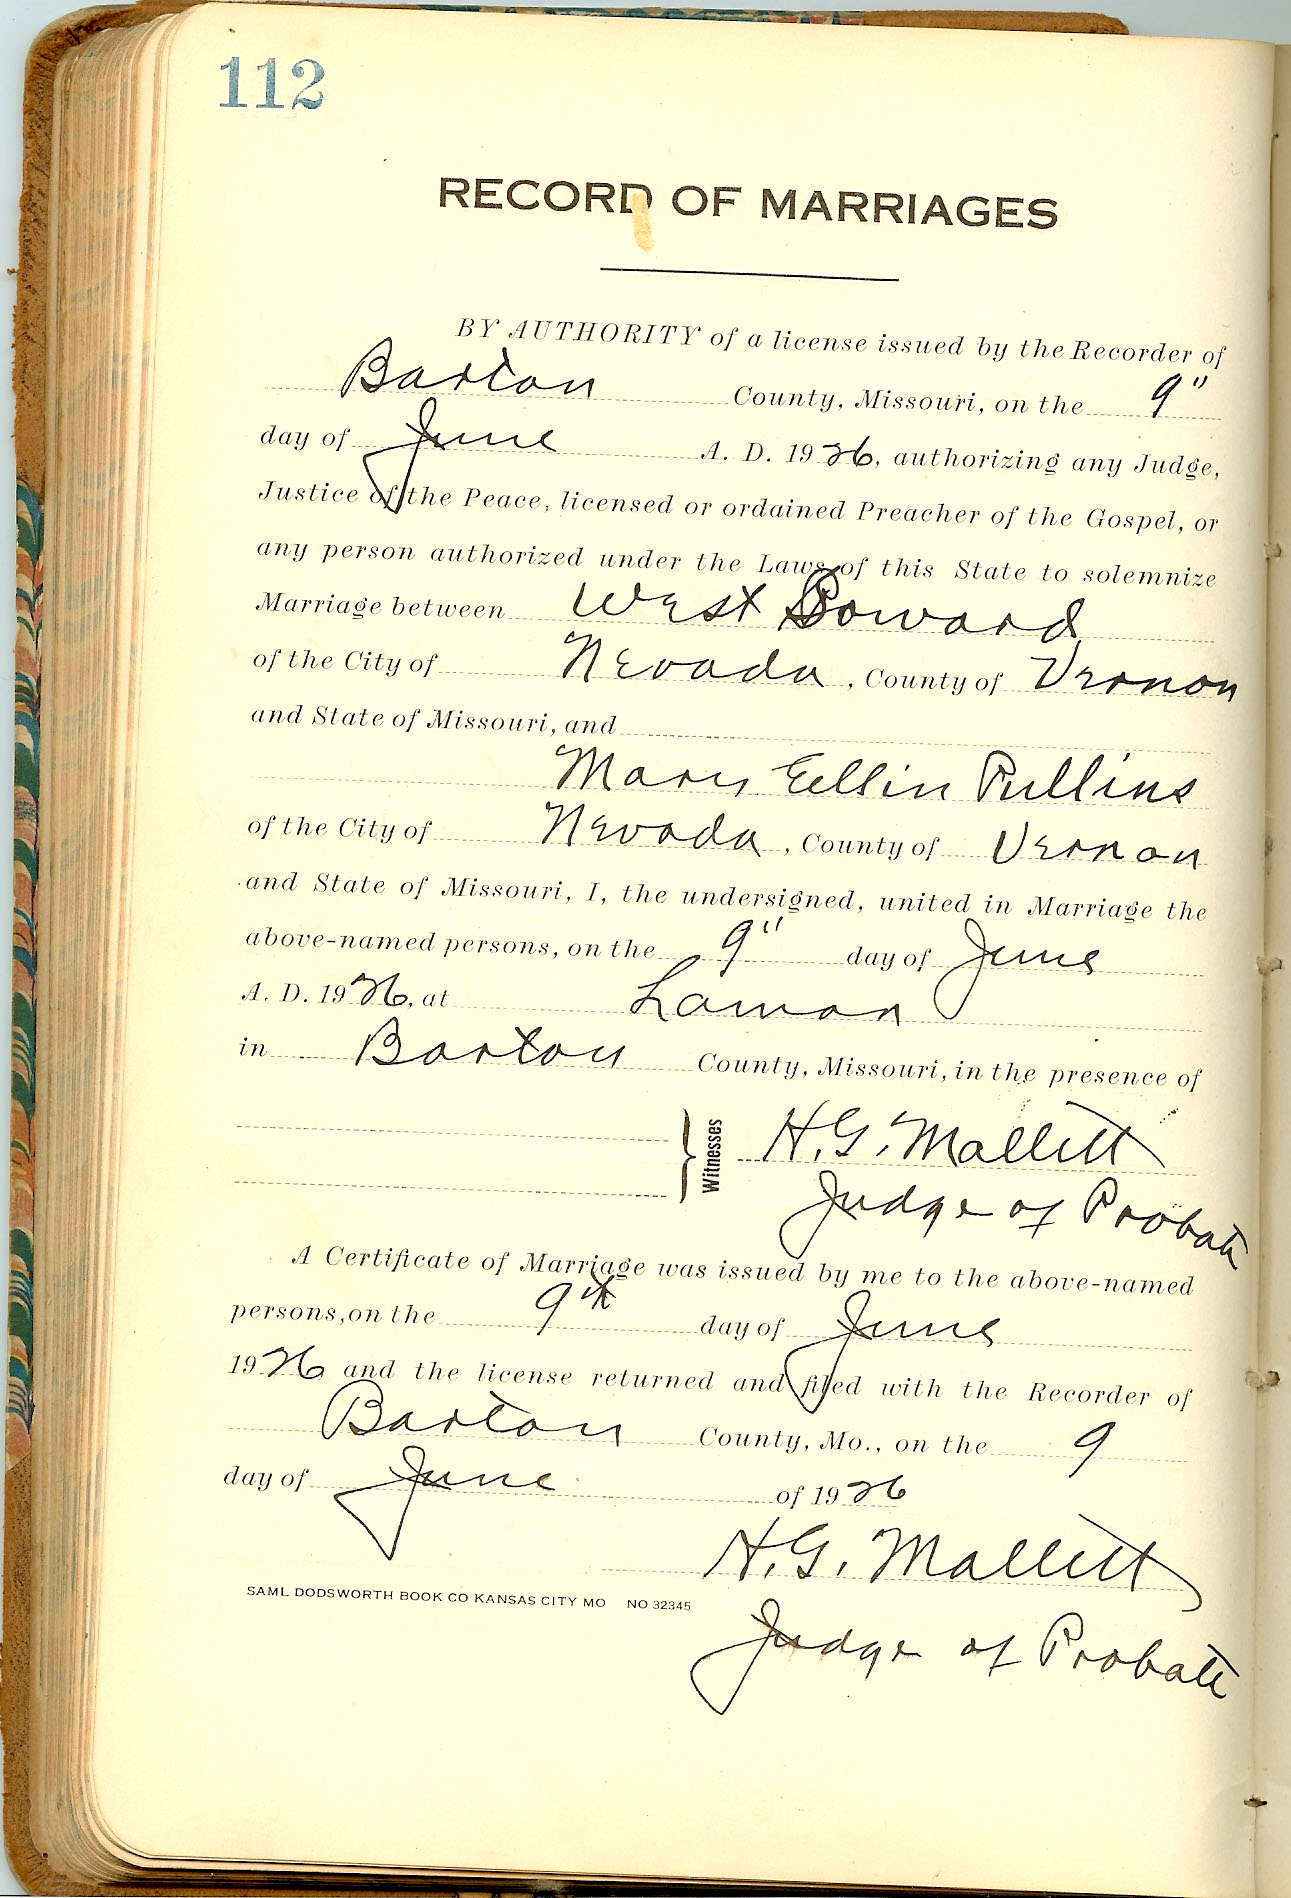 112
RECORD OF MARRIAGES
BY AUTHORITY of a license issued by the Recorder of
Barton County, Missouri, on the 9"
day of June A. D. 1926, authorizing any Judge,
Justice of the Peace, licensed or ordained Preacher of the Gospel, or
any person authorized under the Laws of this State to solemnize
Marriage between West Boward
of the City of Nevada, County of Vernon
and State of Missouri, and
Mary Ellin Pullins
of the City of Nevada, County of Vernon
and State of Missouri, I, the undersigned, united in Marriage the
above-named persons, on the 9" day of June
A. D. 1926, at Lamar
in Barton County, Missouri, in the presence of
Witnesses
H. G. Mallett
Judge of Probate
A Certificate of Marriage was issued by me to the above-named
persons, on the 9th day of June
1926 and the license returned and filed with the Recorder of
Barton County, Mo., on the 9
day of June of 1926
H. G. Mallett
SAML DODSWORTH BOOK CO KANSAS CITY MO NO 32345
Judge of Probate